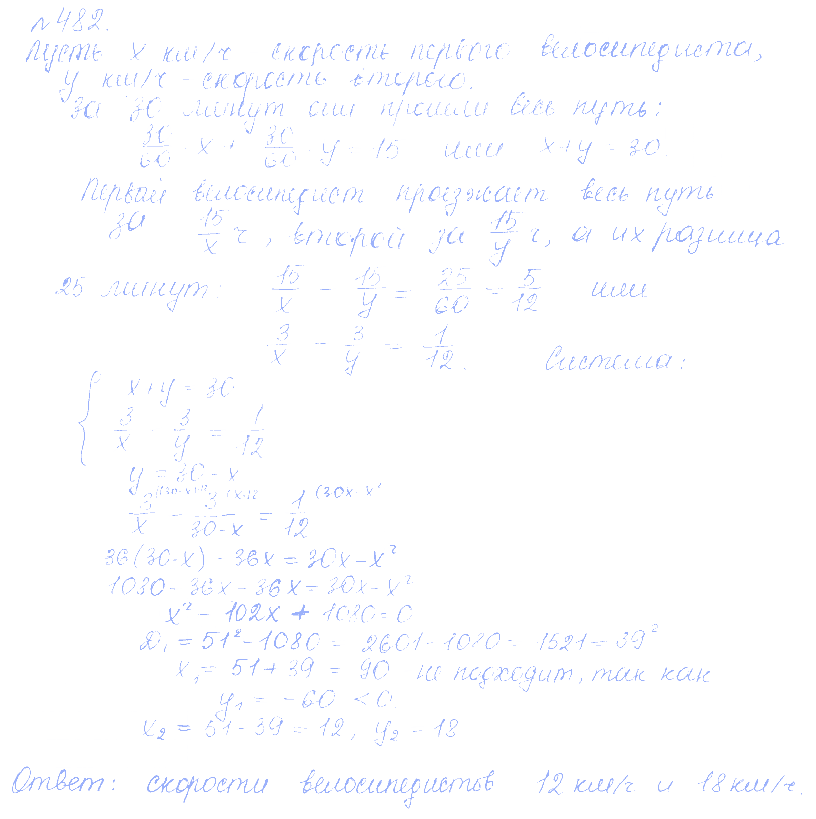 №482.
Пусть x км/ч скорость первого велосипедиста,
y км/ч - скорость второго.
За 30 минут они прошли весь путь:
30/60 · x + 30/60 · y = 15 или x+y = 30.
Первый велосипедист проезжает весь путь
за 15/x ч, второй за 15/y ч, а их разница
25 минут: 15/x - 15/y = 25/60 = 5/12 или
3/x - 3/y = 1/12. Система:
{ x+y = 30
3/x - 3/y = 1/12
y = 30-x
3/x - 3/(30-x) = 1/12 (30x-x²
36(30-x) - 36x = 30x-x²
1080-36x-36x = 30x-x²
x² - 102x + 1080=0
D₁ = 51²-1080 = 2601-1080 = 1521 = 39²
x₁ = 51+39 = 90 не подходит, так как
y₁ = -60 <0.
x₂ = 51-39 = 12, y₂ = 18
Ответ: скорости велосипедистов 12 км/ч и 18 км/ч.